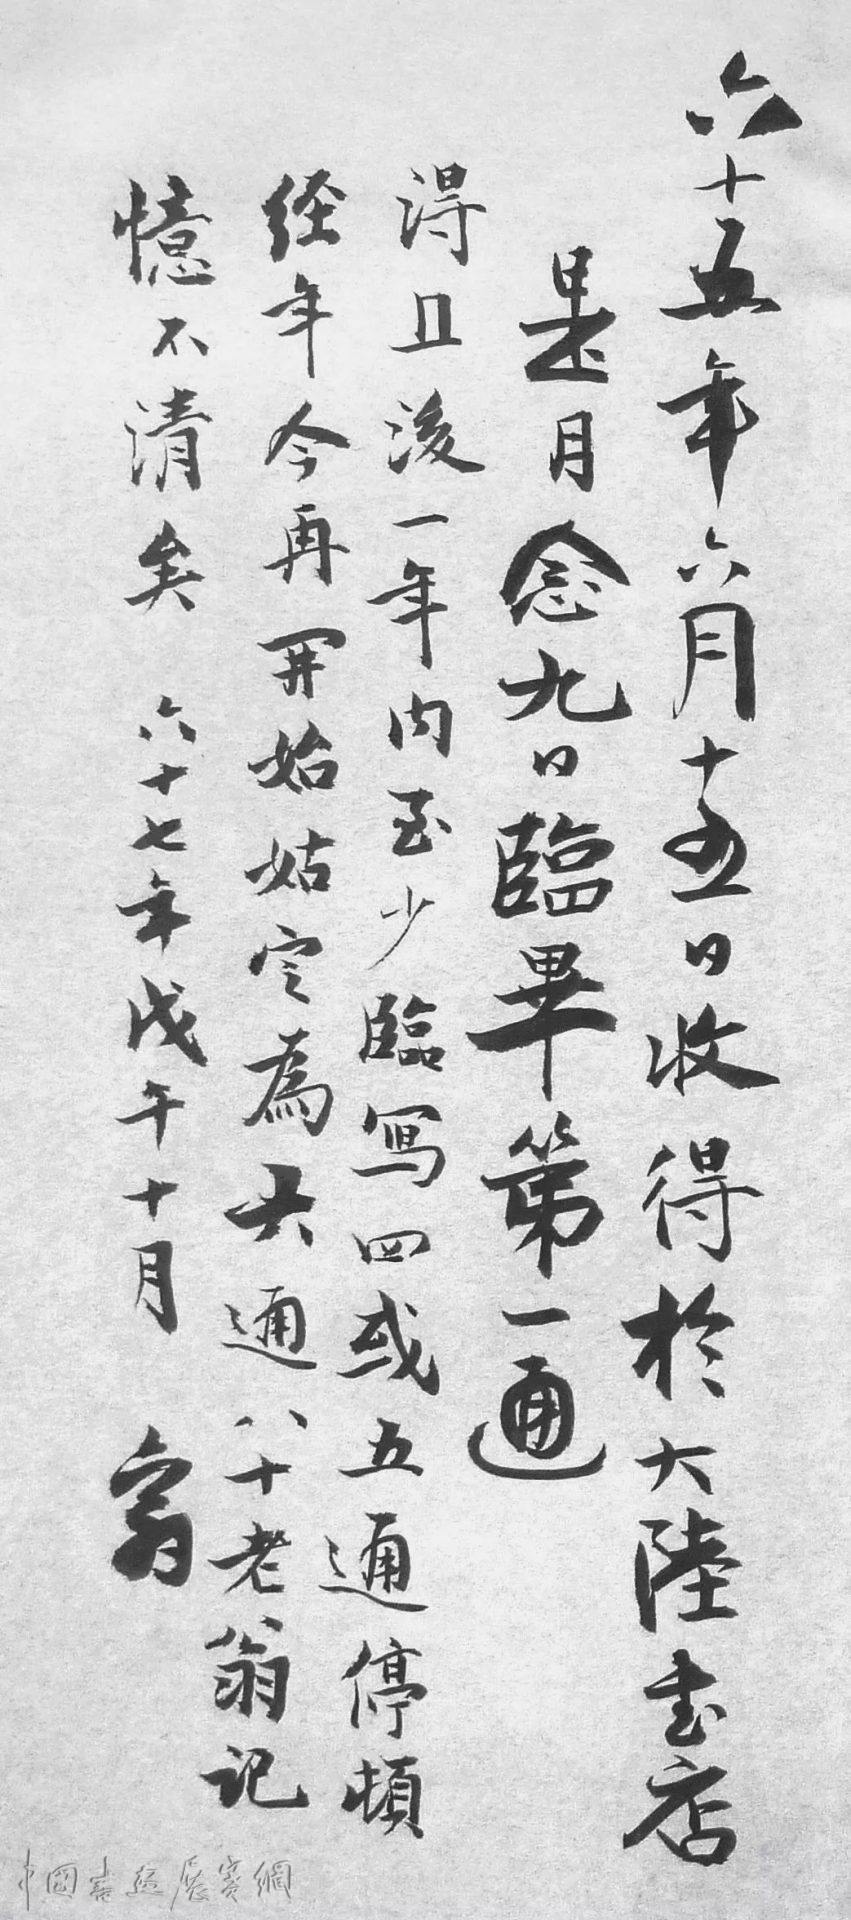 六十五年六月十五日收得於大陸書店
是月念九日臨畢第一通
得且後一年内至少臨寫四或五通停頓
经年今再開始姑定為六通八十老翁記
憶不清矣 六十七年戊午十月 翁
中國書法展賽網